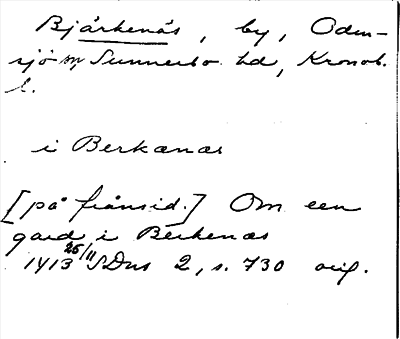 Bjärkenäs, by, Oden-
sjö sn Sunnerbo hd, Kronob.
l.
i Berkanas
[på frånsid.] Om een
gard i Berkenas
1413 25/11 SDns 2, s. 730 orig.